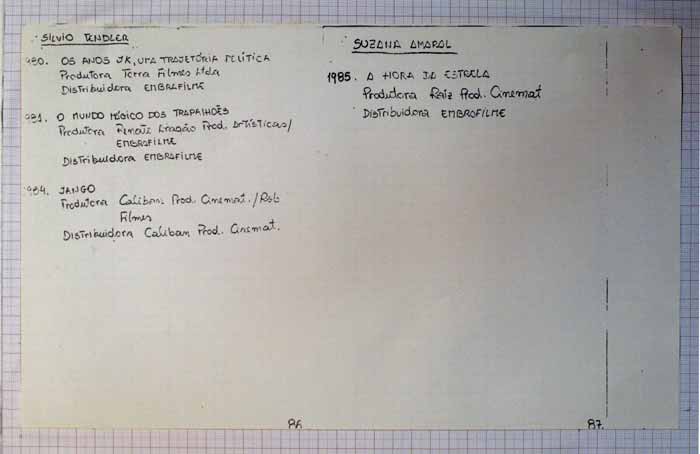 SILVIO TENDLER
980. OS ANOS JK, UMA TRAJETÓRIA POLÍTICA
Produtora Terra Filmes Ltda
Distribuidora EMBRAFILME
981. O MUNDO MÁGICO DOS TRAPALHÕES
Produtora Renato Aragão Prod. Artísticas/
EMBRAFILME
Distribuidora EMBRAFILME
984. JANGO
Produtora Caliban Prod. Cinemat./Rob
Filmes
Distribuidora Caliban Prod. Cinemat.
86
SUZANA AMARAL
1985. A HORA DA ESTRELA
Produtora Raiz Prod. Cinemat
Distribuidora EMBRAFILME
87